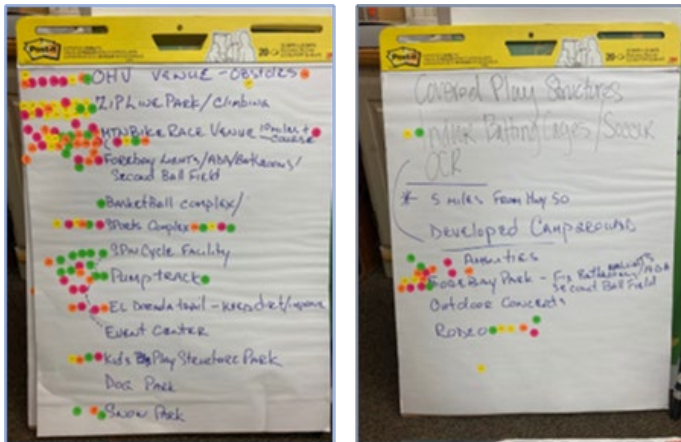 Post-it
20
OHV VENUE - OBSTACLES
ZIPLINE PARK/CLIMBING
MTN BIKE RACE VENUE 10 miles + course
FOREBAY LIGHTS/ADA/BATHROOMS/
SECOND BALL FIELD
BASKETBALL COMPLEX/
SPORTS COMPLEX
SPIN CYCLE FACILITY
PUMPTRACK
EL DORADO TRAIL - KEEP DIRT/IMPROVE
EVENT CENTER
KID'S PLAY STRUCTURE PARK
DOG PARK
SNOW PARK
Post-it
20
Covered Play Structures
Indoor Batting Cages/Soccer
OCR
* 5 miles From Hwy 50
DEVELOPED CAMPGROUND
AMENITIES
FOREBAY PARK - Fix Bathrooms/ADA
LIGHTS
SECOND BALL FIELD
OUTDOOR CONCERTS
RODEO